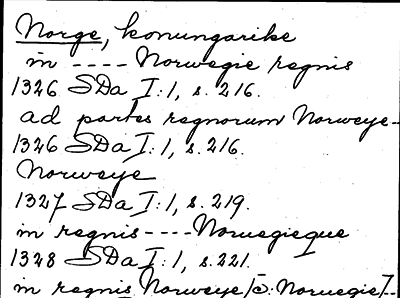 Norge, konungarike
in ---- Norwegie regnis
1326 SDa I:1, s. 216.
ad partes regnorum Norweye-
1326 SDa I:1, s. 216.
Norweye
1327 SDa I:1, s. 219.
in regnis ---- Noruegieque
1328 SDa I:1, s. 221.
in regnis Norweye [ɔ: Noruegie]-